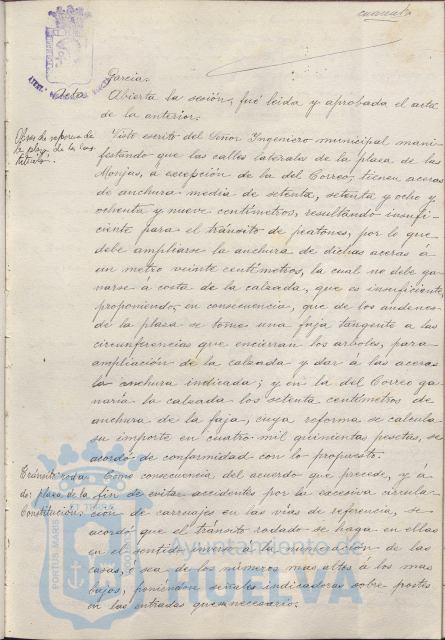 cuarenta
Garcia.
Acta
Abierta la sesión, fué leida y aprobada el acta
de la anterior.
Obras de reforma de
la plaza de las
Visto escrito del Señor Ingeniero municipal mani-
festando que las calles laterales de la plaza de las
Monjas, á excepción de la del Correo, tienen aceras
de anchura media de setenta, setenta y ocho y
ochenta y nueve centímetros, resultando insufi-
ciente para el tránsito de peatones, por lo que
debe ampliarse la anchura de dichas aceras á
un metro veinte centímetros, la cual no debe ga-
narse á costa de la calzada, que es insuficiente,
proponiendo, en consecuencia, que de los andenes
de la plaza se tome una faja tangente a las
circunferencias que encierran los arboles, para
ampliación de la calzada y dar á las aceras
la anchura indicada; y en la del Correo ga-
naría la calzada los setenta centímetros de
anchura de la faja, cuya reforma se calcula
su importe en cuatro mil quinientas pesetas, se
acordó de conformidad con lo propuesto.
Tránsito roda-
do: plaza de la
Constitución.
Como consecuencia del acuerdo que precede, y á
fin de evitar accidentes por la excesiva circula-
ción de carruajes en las vías de referencia, se
acordó que el tránsito rodado se haga en ellas
en el sentido inverso á la numeración de las
casas, o sea de los números mas altos á los mas
bajos, poniéndose señales indicadoras sobre postes
en las entradas que necesario.
PORTUS MARIS
Ayuntamiento de
HUELVA